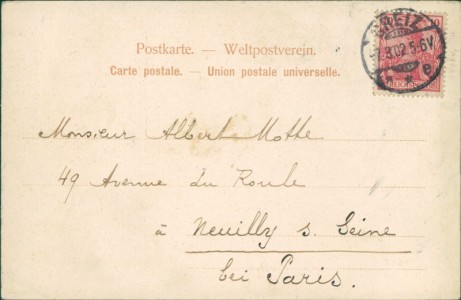 GREIZ
8.02.5-6V
e
Postkarte. — Weltpostverein.
Carte postale. — Union postale universelle.
Monsieur Albert Motte
49 Avenue du Roule
à Neuilly s. Seine
bei Paris.